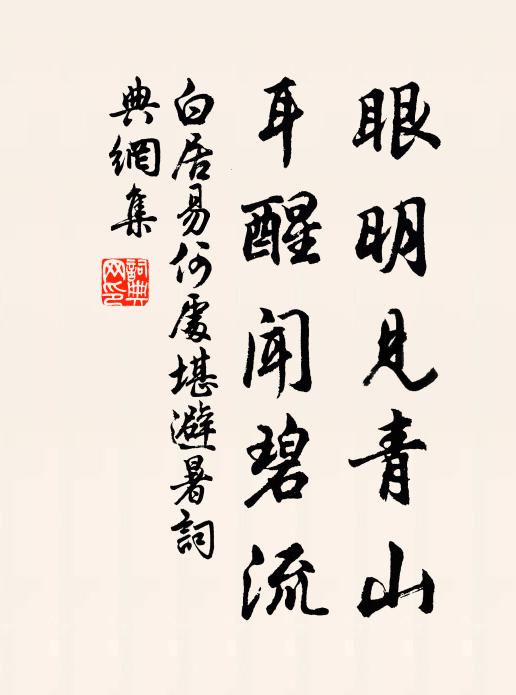 眼明見青山
耳醒聞碧流
白居易何處堪避暑詞
典網集
詞典
网印